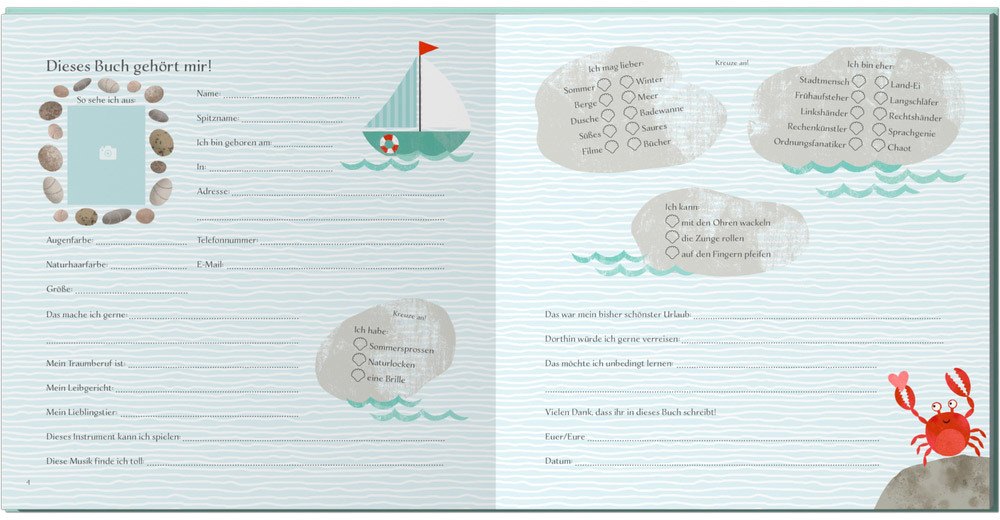 Dieses Buch gehört mir!
So sehe ich aus:
Name:
Spitzname:
Ich bin geboren am:
In:
Adresse:
Augenfarbe:
Telefonnummer:
Naturhaarfarbe:
E-Mail:
Größe:
Das mache ich gerne:
Mein Traumberuf ist:
Mein Leibgericht:
Mein Lieblingstier:
Dieses Instrument kann ich spielen:
Diese Musik finde ich toll:
Kreuze an!
Ich habe:
Sommersprossen
Naturlocken
eine Brille
4
Ich mag lieber:
Sommer Winter
Berge Meer
Dusche Badewanne
Süßes Saures
Filme Bücher
Kreuze an!
Ich bin eher:
Stadtmensch Land-Ei
Frühaufsteher Langschläfer
Linkshänder Rechtshänder
Rechenkünstler Sprachgenie
Ordnungsfanatiker Chaot
Ich kann:
mit den Ohren wackeln
die Zunge rollen
auf den Fingern pfeifen
Das war mein bisher schönster Urlaub:
Dorthin würde ich gerne verreisen:
Das möchte ich unbedingt lernen:
Vielen Dank, dass ihr in dieses Buch schreibt!
Euer/Eure
Datum: